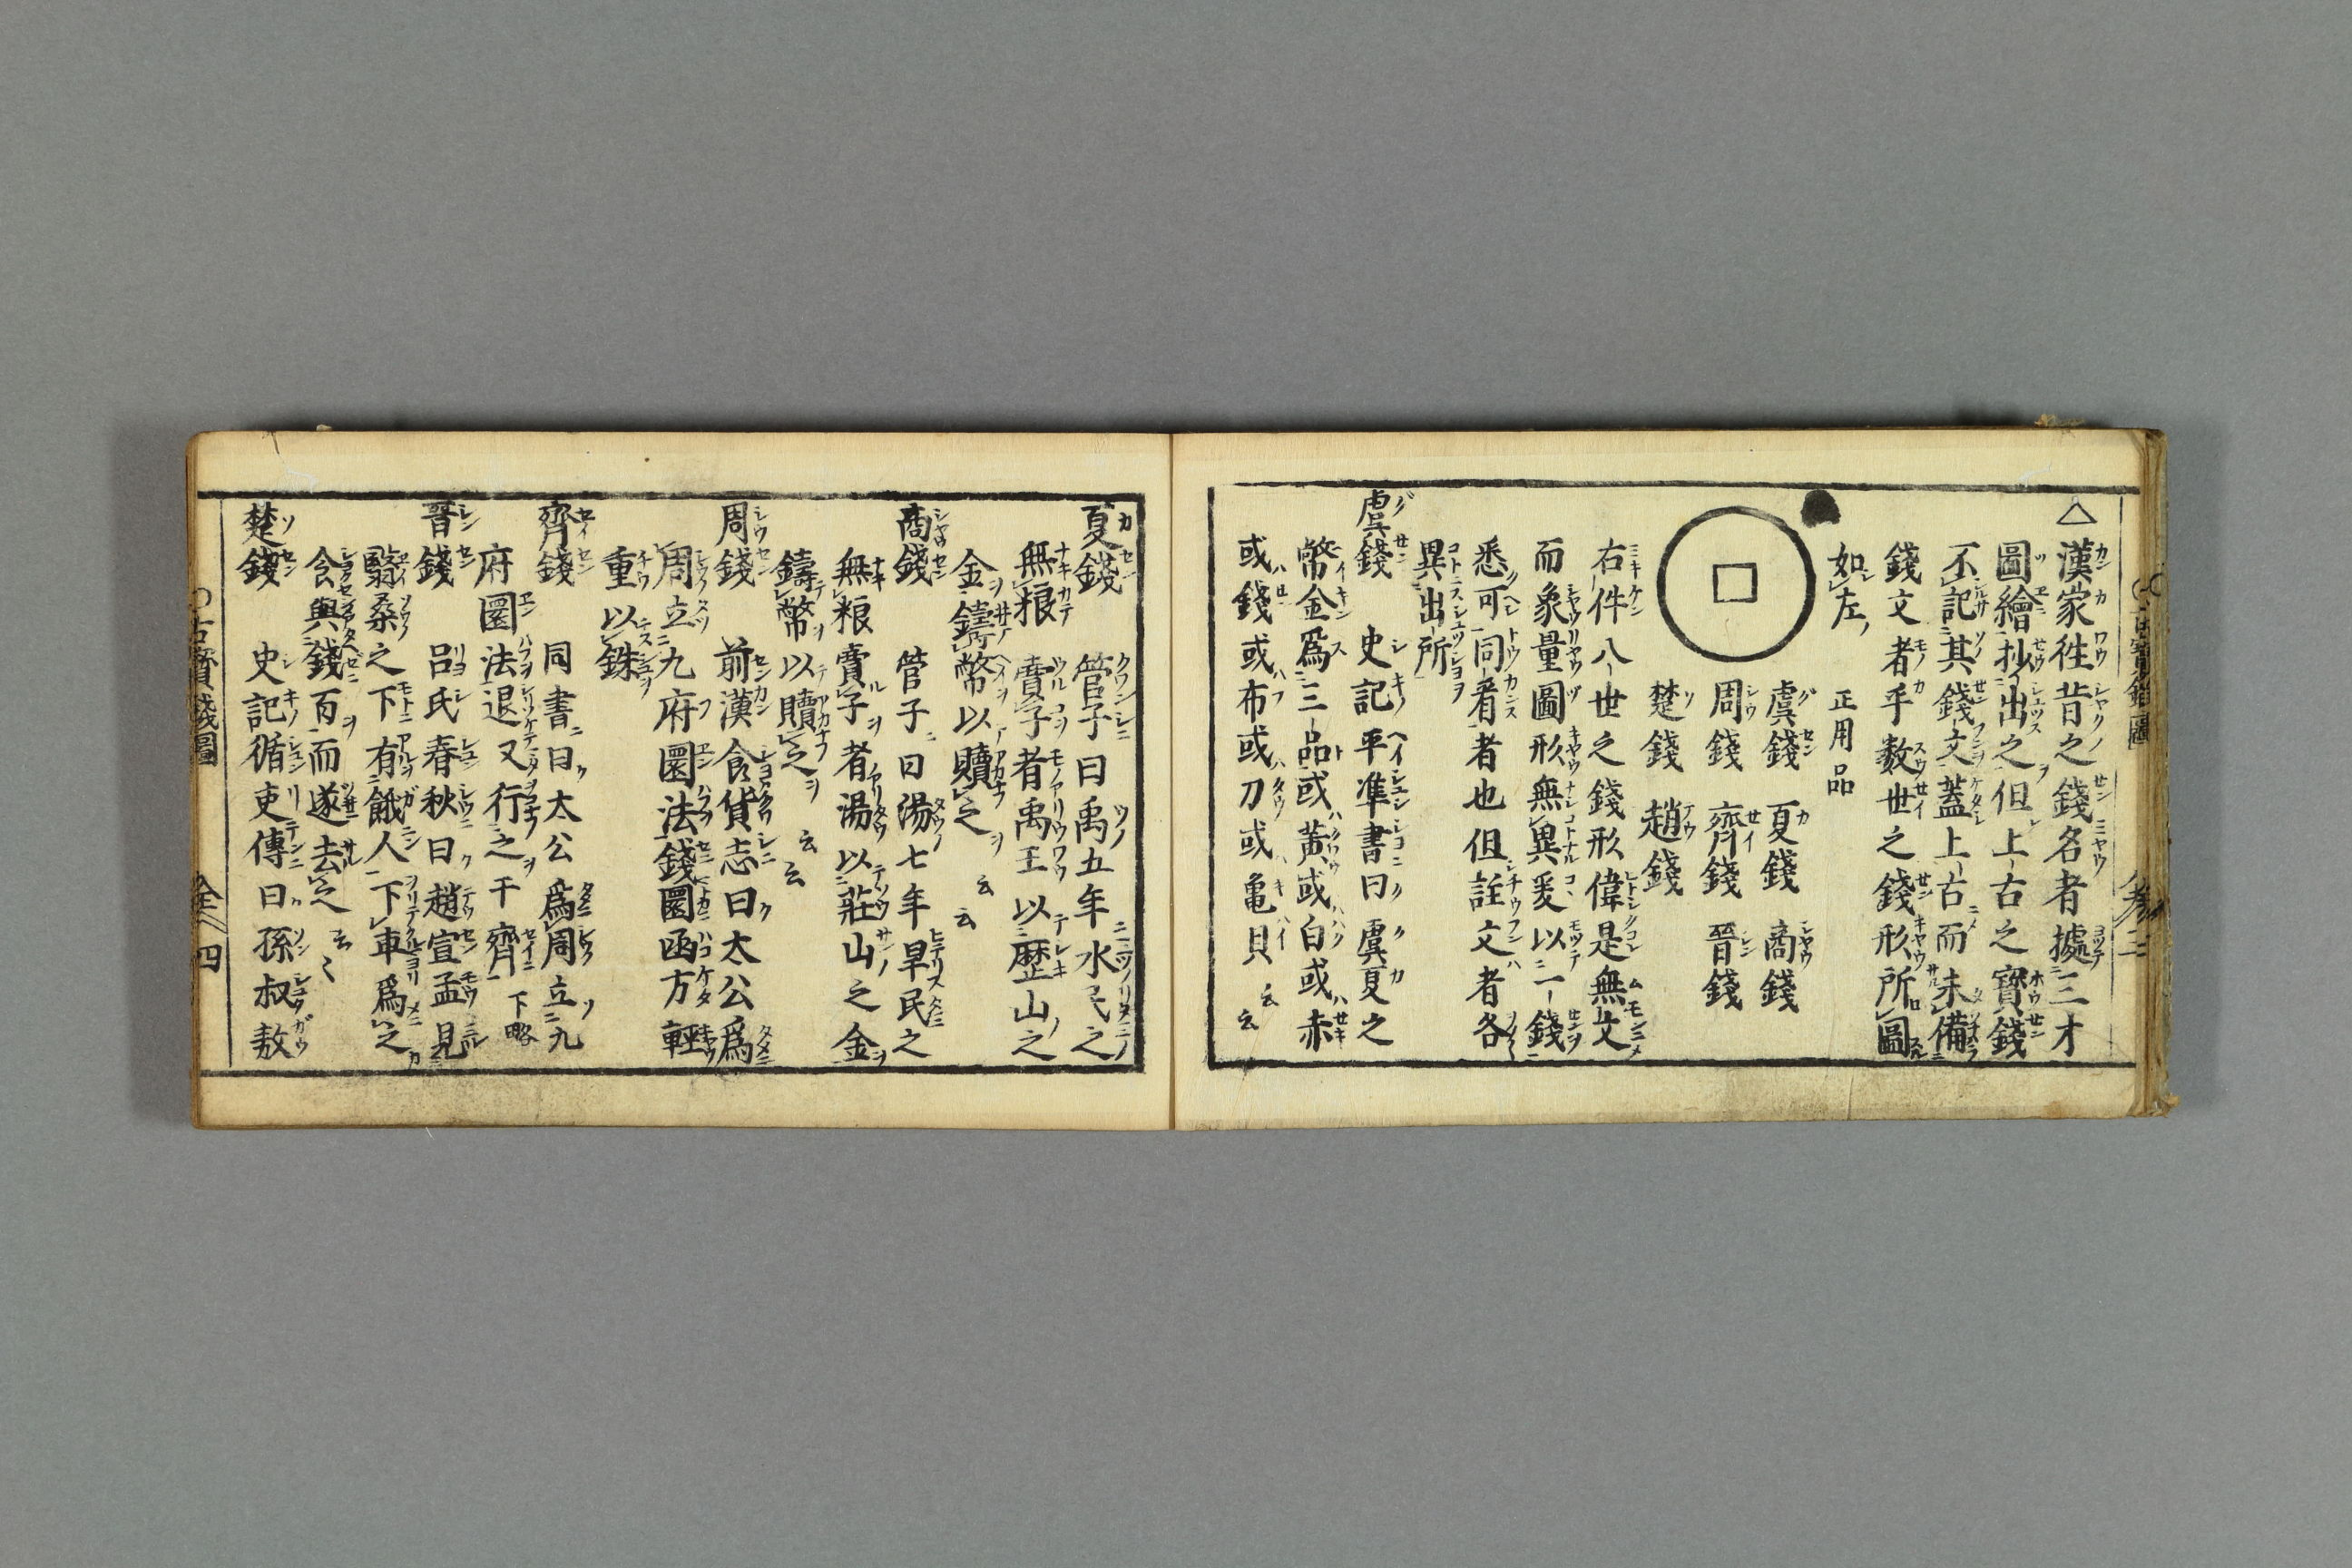 △漢家徃昔之錢名者據三才
圖繪抄出之但上古之寳錢
不記其錢文蓋上古而未備
錢文者乎数世之錢形所圖
如左
正用品
虞錢 夏錢 商錢
周錢 齊錢 晉錢
楚錢 趙錢
右件八世之錢形偉是無文
而象量圖形無異爰以一錢
悉可同看者也但註文者各
異出所
虞錢 史記平準書曰虞夏之
幣金爲三品或黄或白或赤
或錢或布或刀或亀貝云云
夏錢 管子曰禹五年水民之
無粮賣子者禹王以歴山之
金鑄幣以贖之云云
商錢 管子曰湯七年旱民之
無粮賣子者湯以莊山之金
鑄幣以贖之云云
周錢 前漢食貨志曰太公爲
周立九府圜法錢圜函方輕
重以銖
齊錢 同書曰太公爲周立九
府圜法退又行之于齊下略
晉錢 呂氏春秋曰趙宣孟見
翳桑之下有餓人下車爲之
食與錢百而遂去之云〻
楚錢 史記循吏傳曰孫叔敖
古寳錢圖 全 四